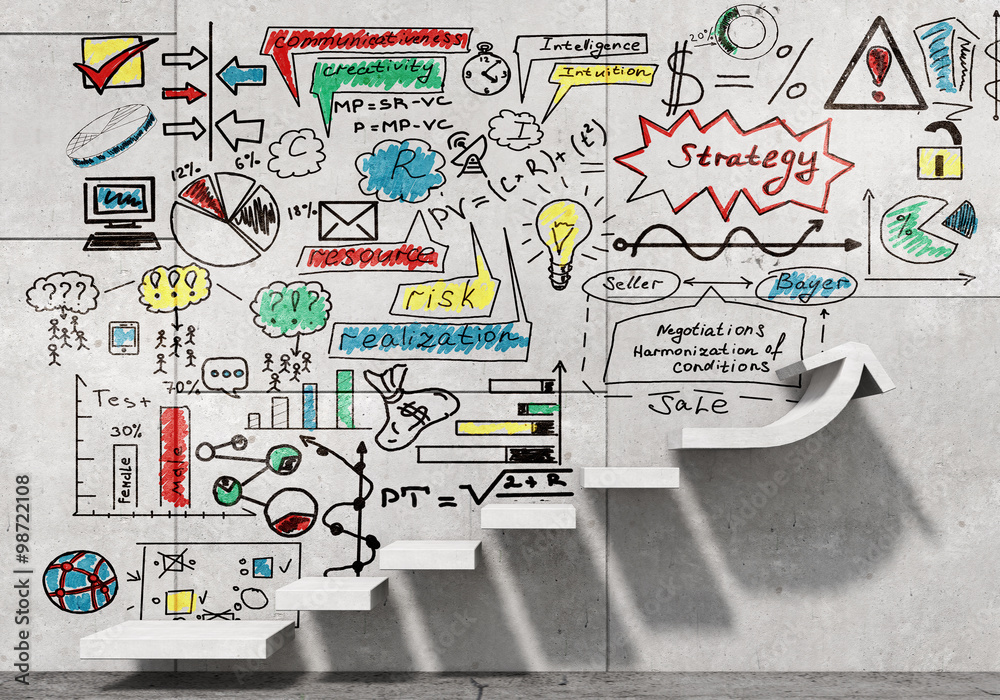 communicativeness
creativity
MP=SR-VC
P=MP-VC
12
Intelligence
Intuition
20%
$ = %
!
Strategy
C
R
I
PV = (C+R)+(t²)
=
12%
6%
18%
resource
risk
realization
%
Seller
Bayer
Negotiations
Harmonization of
conditions
Sale
???
!!!
?!?
70%
Test
30%
Female
Male
$
PT = √2+R
Adobe Stock | #98722108
Adobe Stock